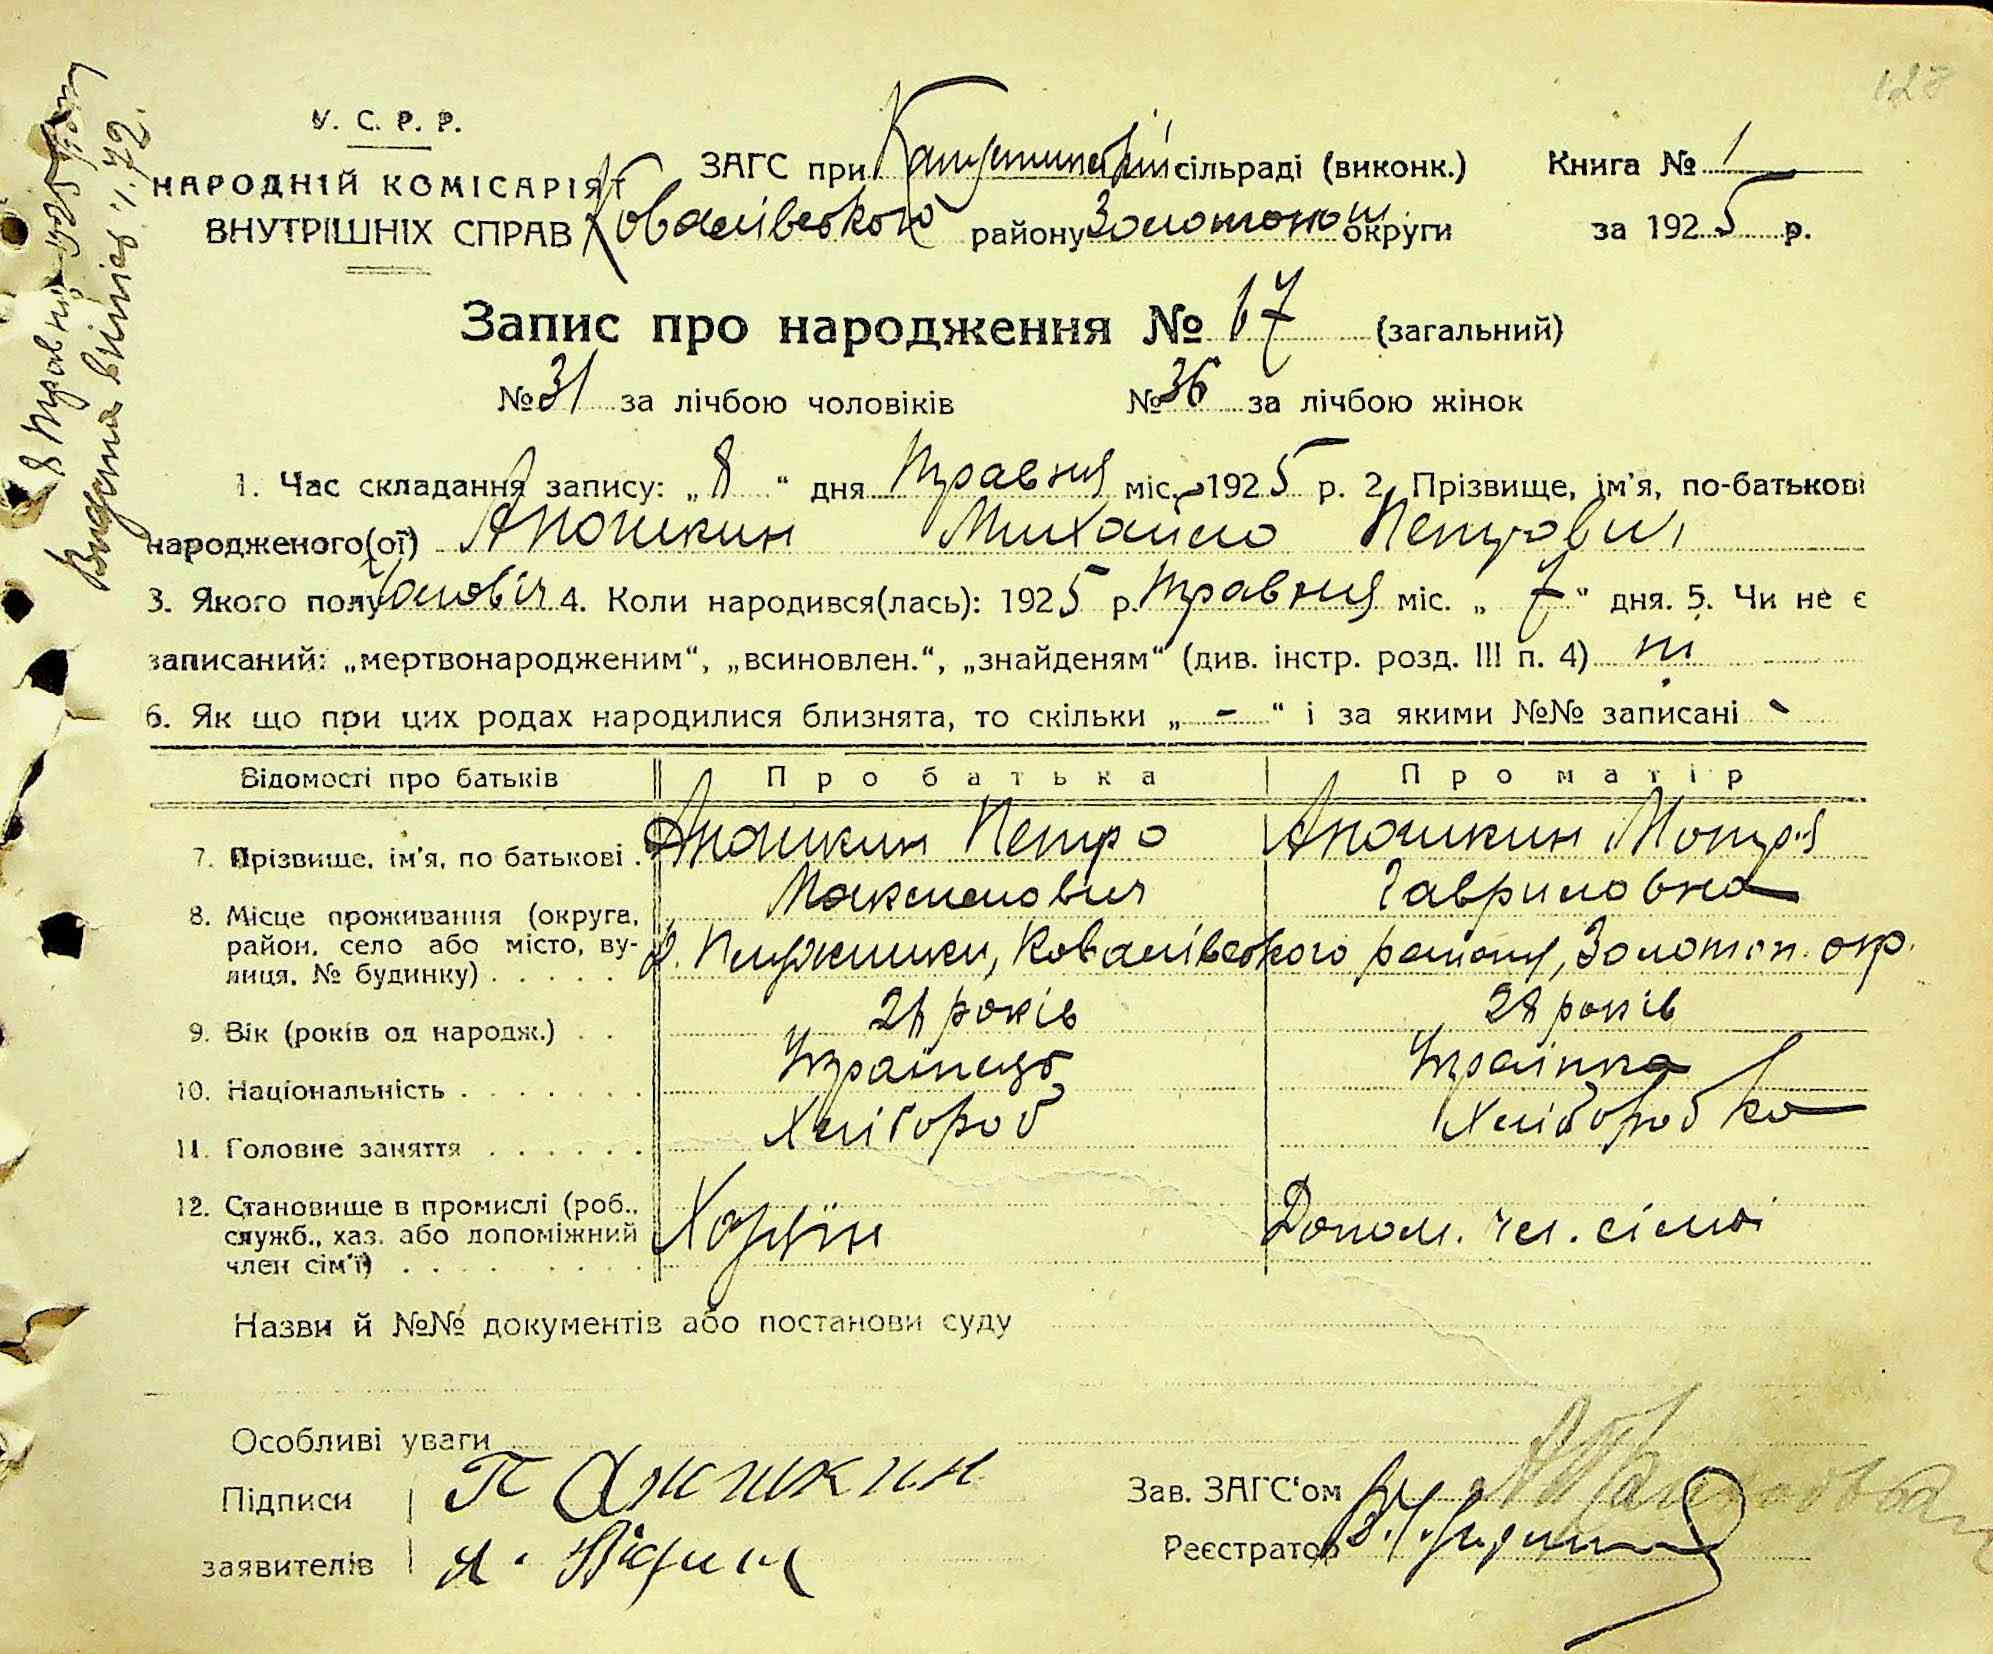 128
У. С. Р. Р.
НАРОДНІЙ КОМІСАРІЯТ
ВНУТРІШНІХ СПРАВ
ЗАГС при Капустинській сільраді (виконк.)
Ковалівського району Золотонош округи
Книга № 1
за 1925 р.
8 Травня 1925 року
Видана випись ч. 72.
Запис про народження № 67 (загальний)
№ 31 за лічбою чоловіків № 36 за лічбою жінок
1. Час складання запису: „8“ дня Травня міс. 1925 р. 2. Прізвище, ім'я, по-батькові
народженого(ої) Аношкин Михайло Петрович
3. Якого полу Чоловіч 4. Коли народився(лась): 1925 р. Травня міс. „7“ дня. 5. Чи не є
записаний: „мертвонародженим“, „всиновлен.“, „знайденям“ (див. інстр. розд. III п. 4) ні
6. Як що при цих родах народилися близнята, то скільки „-“ і за якими №№ записані -
Відомості про батьків Про батька Про матір
7. Прізвище, ім'я, по батькові . Аношкин Петро Аношкин Мотря
Максимович Гавриловна
8. Місце проживання (округа,
район, село або місто, ву-
лиця, № будинку) . . . . . Ковалівського району, Золотон. окр.
9. Вік (років од народж.) . . років 28 років
10. Національність . . . . . . . Українець Українка
11. Головне заняття . . . . . . Хлібороб Хліборобка
12. Становище в промислі (роб.,
служб., хаз. або допоміжний
член сім'ї) . . . . . . . . Хазяїн Допом. чл. сімї
Назви й №№ документів або постанови суду
Особливі уваги
Підписи П Аношкин
заявителів
Зав. ЗАГС'ом
Реєстратор